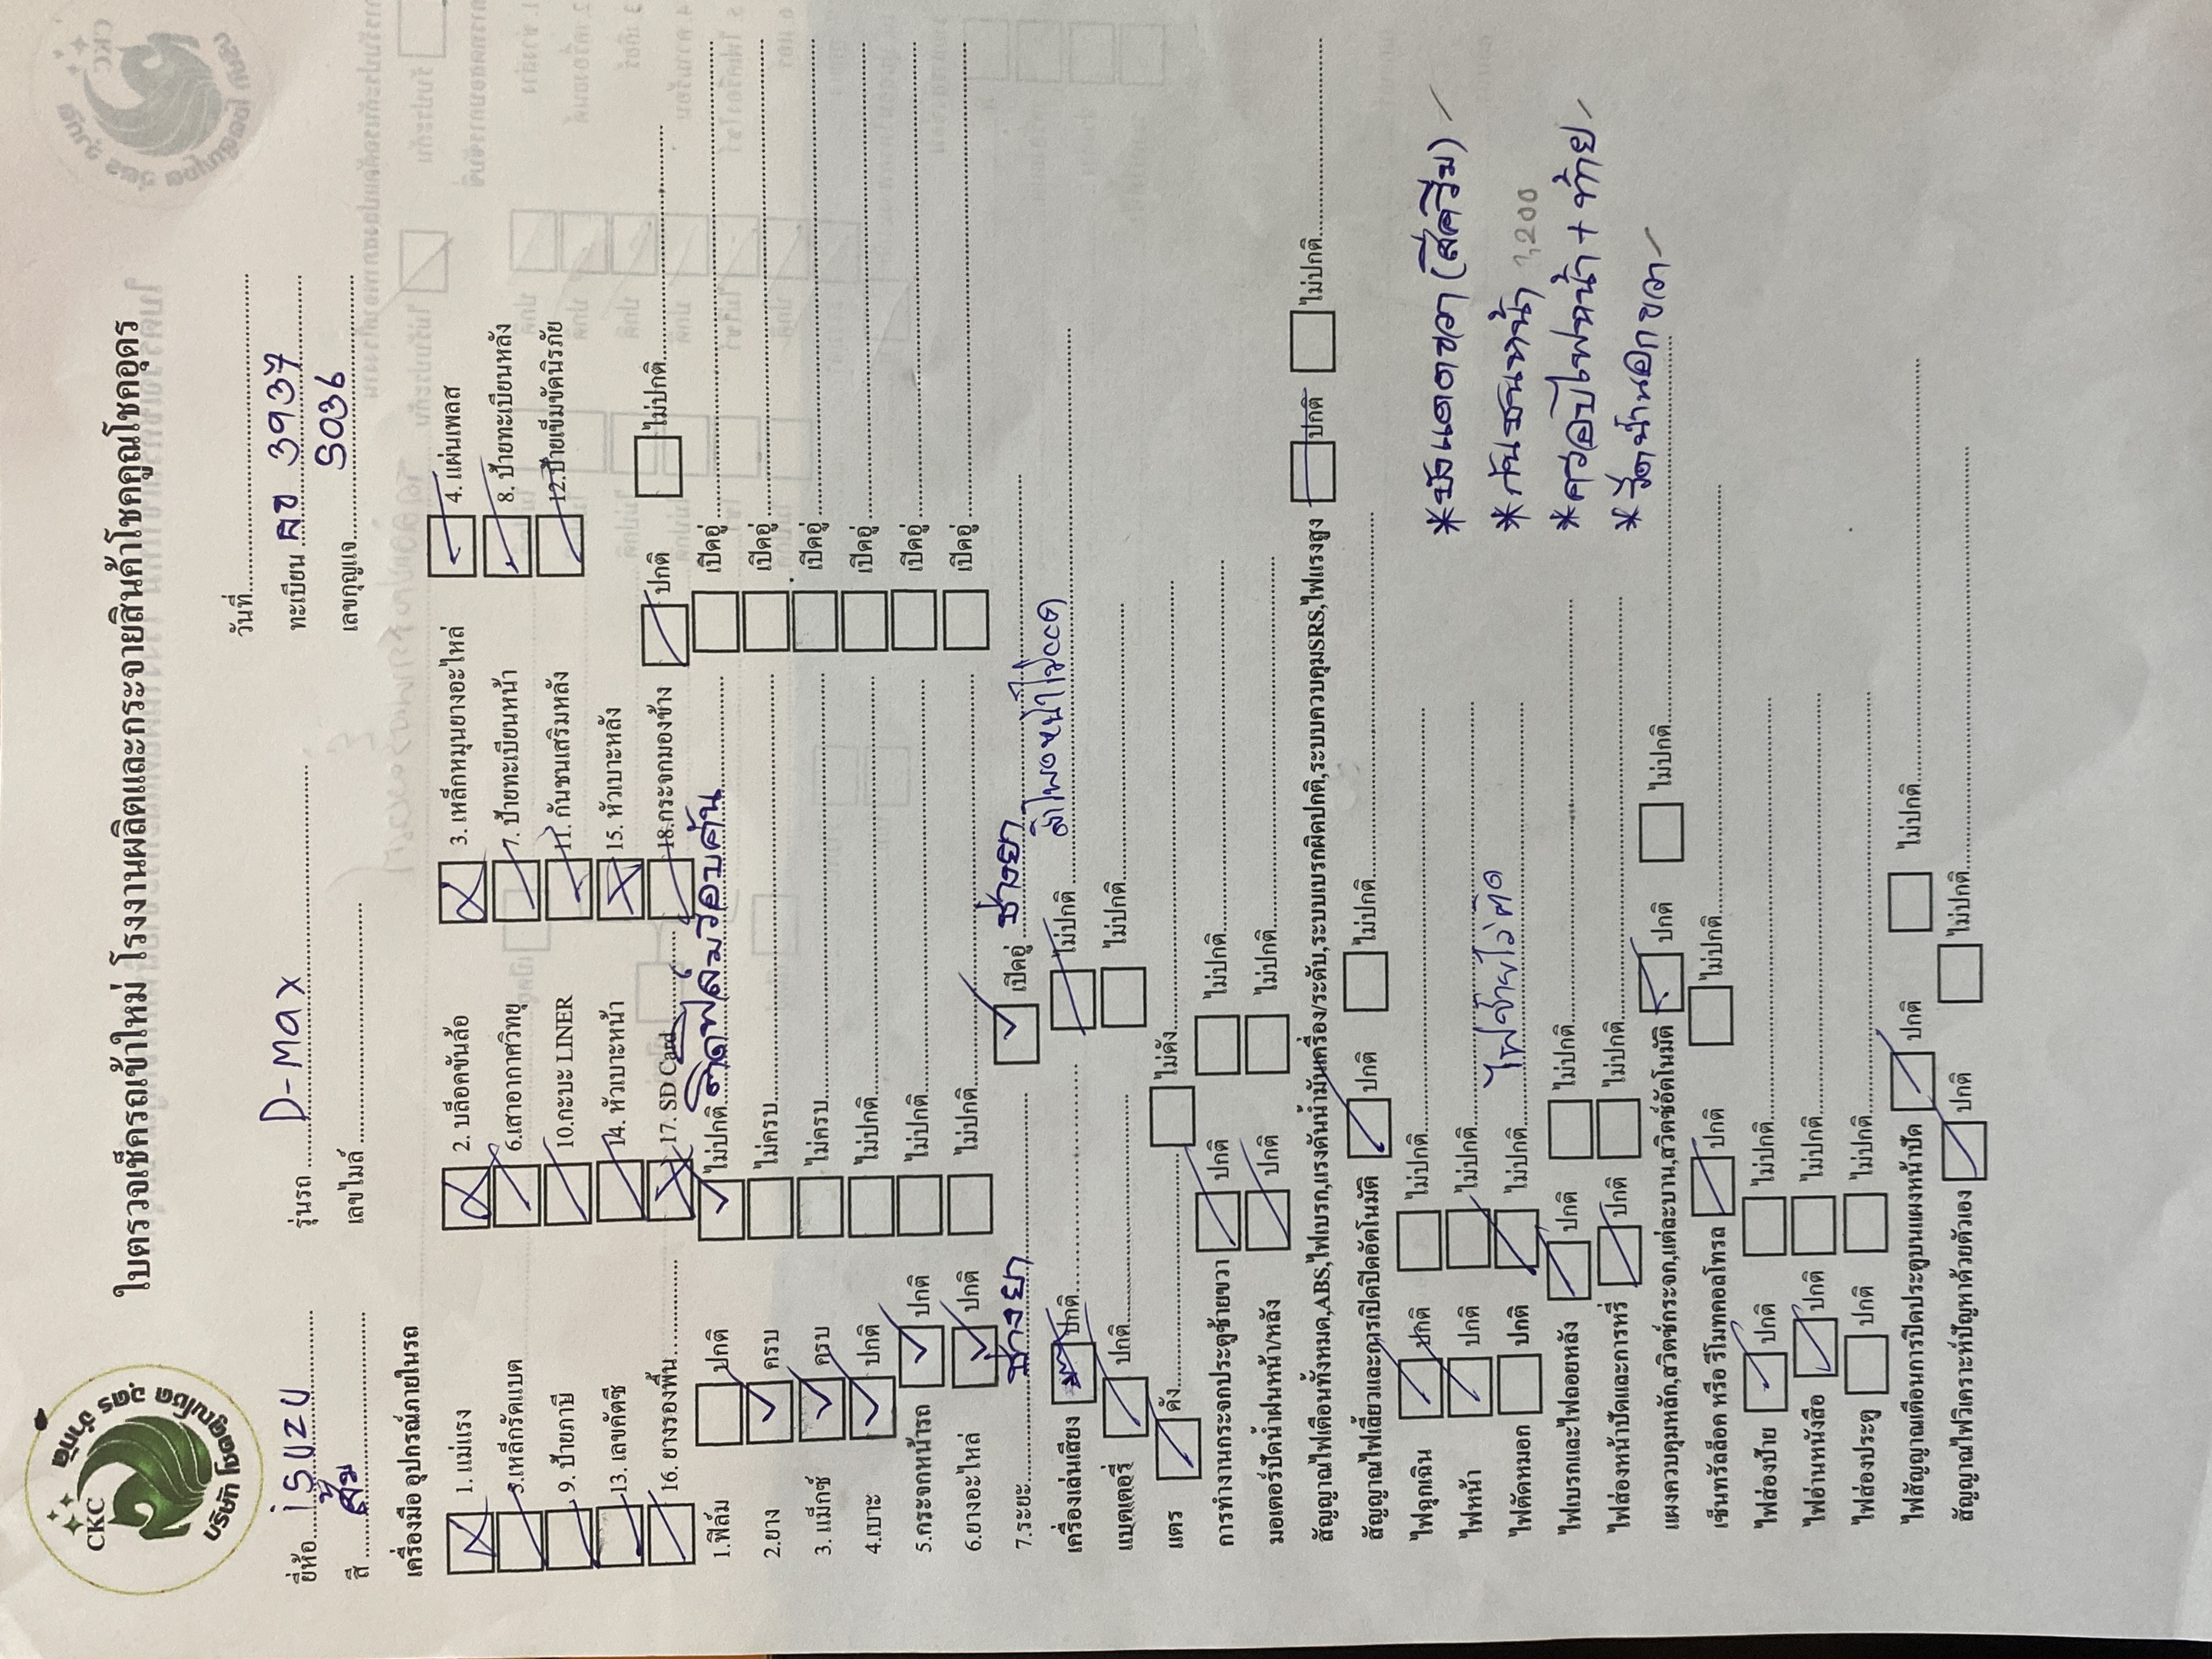 CKC
บริษัท โชคคูณโชค อุดร จำกัด
ใบตรวจเช็ครถเข้าใหม่ โรงงานผลิตและกระจายสินค้าโชคคูณโชคอุดร
วันที่
ยี่ห้อ isuzu รุ่นรถ D-Max ทะเบียน ลข 3937
สี ส้ม เลขไมล์ เลขกุญแจ S036
เครื่องมือ อุปกรณ์ภายในรถ
1. แม่แรง 2. บล็อคขันล้อ 3. เหล็กหมุนยางอะไหล่ 4. แผ่นเพลส
5.เหล็กรัดแบต 6.เสาอากาศวิทยุ 7. ป้ายทะเบียนหน้า 8. ป้ายทะเบียนหลัง
9. ป้ายภาษี 10.กะบะ LINER 11. กันชนเสริมหลัง 12.ป้ายเข็มขัดนิรภัย
13. เลขคัตซี 14. หัวเบาะหน้า 15. หัวเบาะหลัง
16. ยางรองพื้น 17. SD Card 18.กระจกมองข้าง ปกติ ไม่ปกติ
1.ฟิล์ม ปกติ ไม่ปกติ ติดฟิล์มรอบคัน เปิดอู่
2.ยาง ครบ ไม่ครบ เปิดอู่
3. แม็กซ์ ครบ ไม่ครบ เปิดอู่
4.เบาะ ปกติ ไม่ปกติ เปิดอู่
5.กระจกหน้ารถ ปกติ ไม่ปกติ เปิดอู่
6.ยางอะไหล่ ปกติ ไม่ปกติ เปิดอู่
7.ระยะ ช่างยา เปิดอู่ ช่างยา
เครื่องเล่นเสียง ปกติ ไม่ปกติ ลำโพงหน้าไม่
แบตเตอรี่ ปกติ ไม่ปกติ
แตร ดัง ไม่ดัง
การทำงานกระจกประตูซ้ายขวา ปกติ ไม่ปกติ
มอเตอร์ปัดน้ำฝนหน้า/หลัง ปกติ ไม่ปกติ
สัญญาณไฟเตือนทั้งหมด,ABS,ไฟเบรก,แรงดันน้ำมันเครื่อง/ระดับ,ระบบเบรกผิดปกติ,ระบบควบคุมSRS,ไฟแรงสูง ปกติ ไม่ปกติ
สัญญาณไฟเลี้ยวและการเปิดปิดอัตโนมัติ ปกติ ไม่ปกติ
ไฟฉุกเฉิน ปกติ ไม่ปกติ
*บังแดดขวา (สีครีม)
ไฟหน้า ปกติ ไม่ปกติ
*กันชนหน้า 1,200
ไฟตัดหมอก ปกติ ไม่ปกติ ไฟซ้ายไม่ติด
*ครอบไฟหน้า + ท้าย
ไฟเบรกและไฟถอยหลัง ปกติ ไม่ปกติ
*รีดน้ำนอกขวา
ไฟส่องหน้าปัดและการหรี่ ปกติ ไม่ปกติ
แผงควบคุมหลัก,สวิตซ์กระจก,แต่ละบาน,สวิตซ์อัตโนมัติ ปกติ ไม่ปกติ
เซ็นทรัลล็อค หรือ รีโมทคอลโทรล ปกติ ไม่ปกติ
ไฟส่องป้าย ปกติ ไม่ปกติ
ไฟอ่านหนังสือ ปกติ ไม่ปกติ
ไฟส่องประตู ปกติ ไม่ปกติ
ไฟสัญญาณเตือนการปิดประตูบนแผงหน้าปัด ปกติ ไม่ปกติ
สัญญาณไฟวิเคราะห์ปัญหาด้วยตัวเอง ปกติ ไม่ปกติ